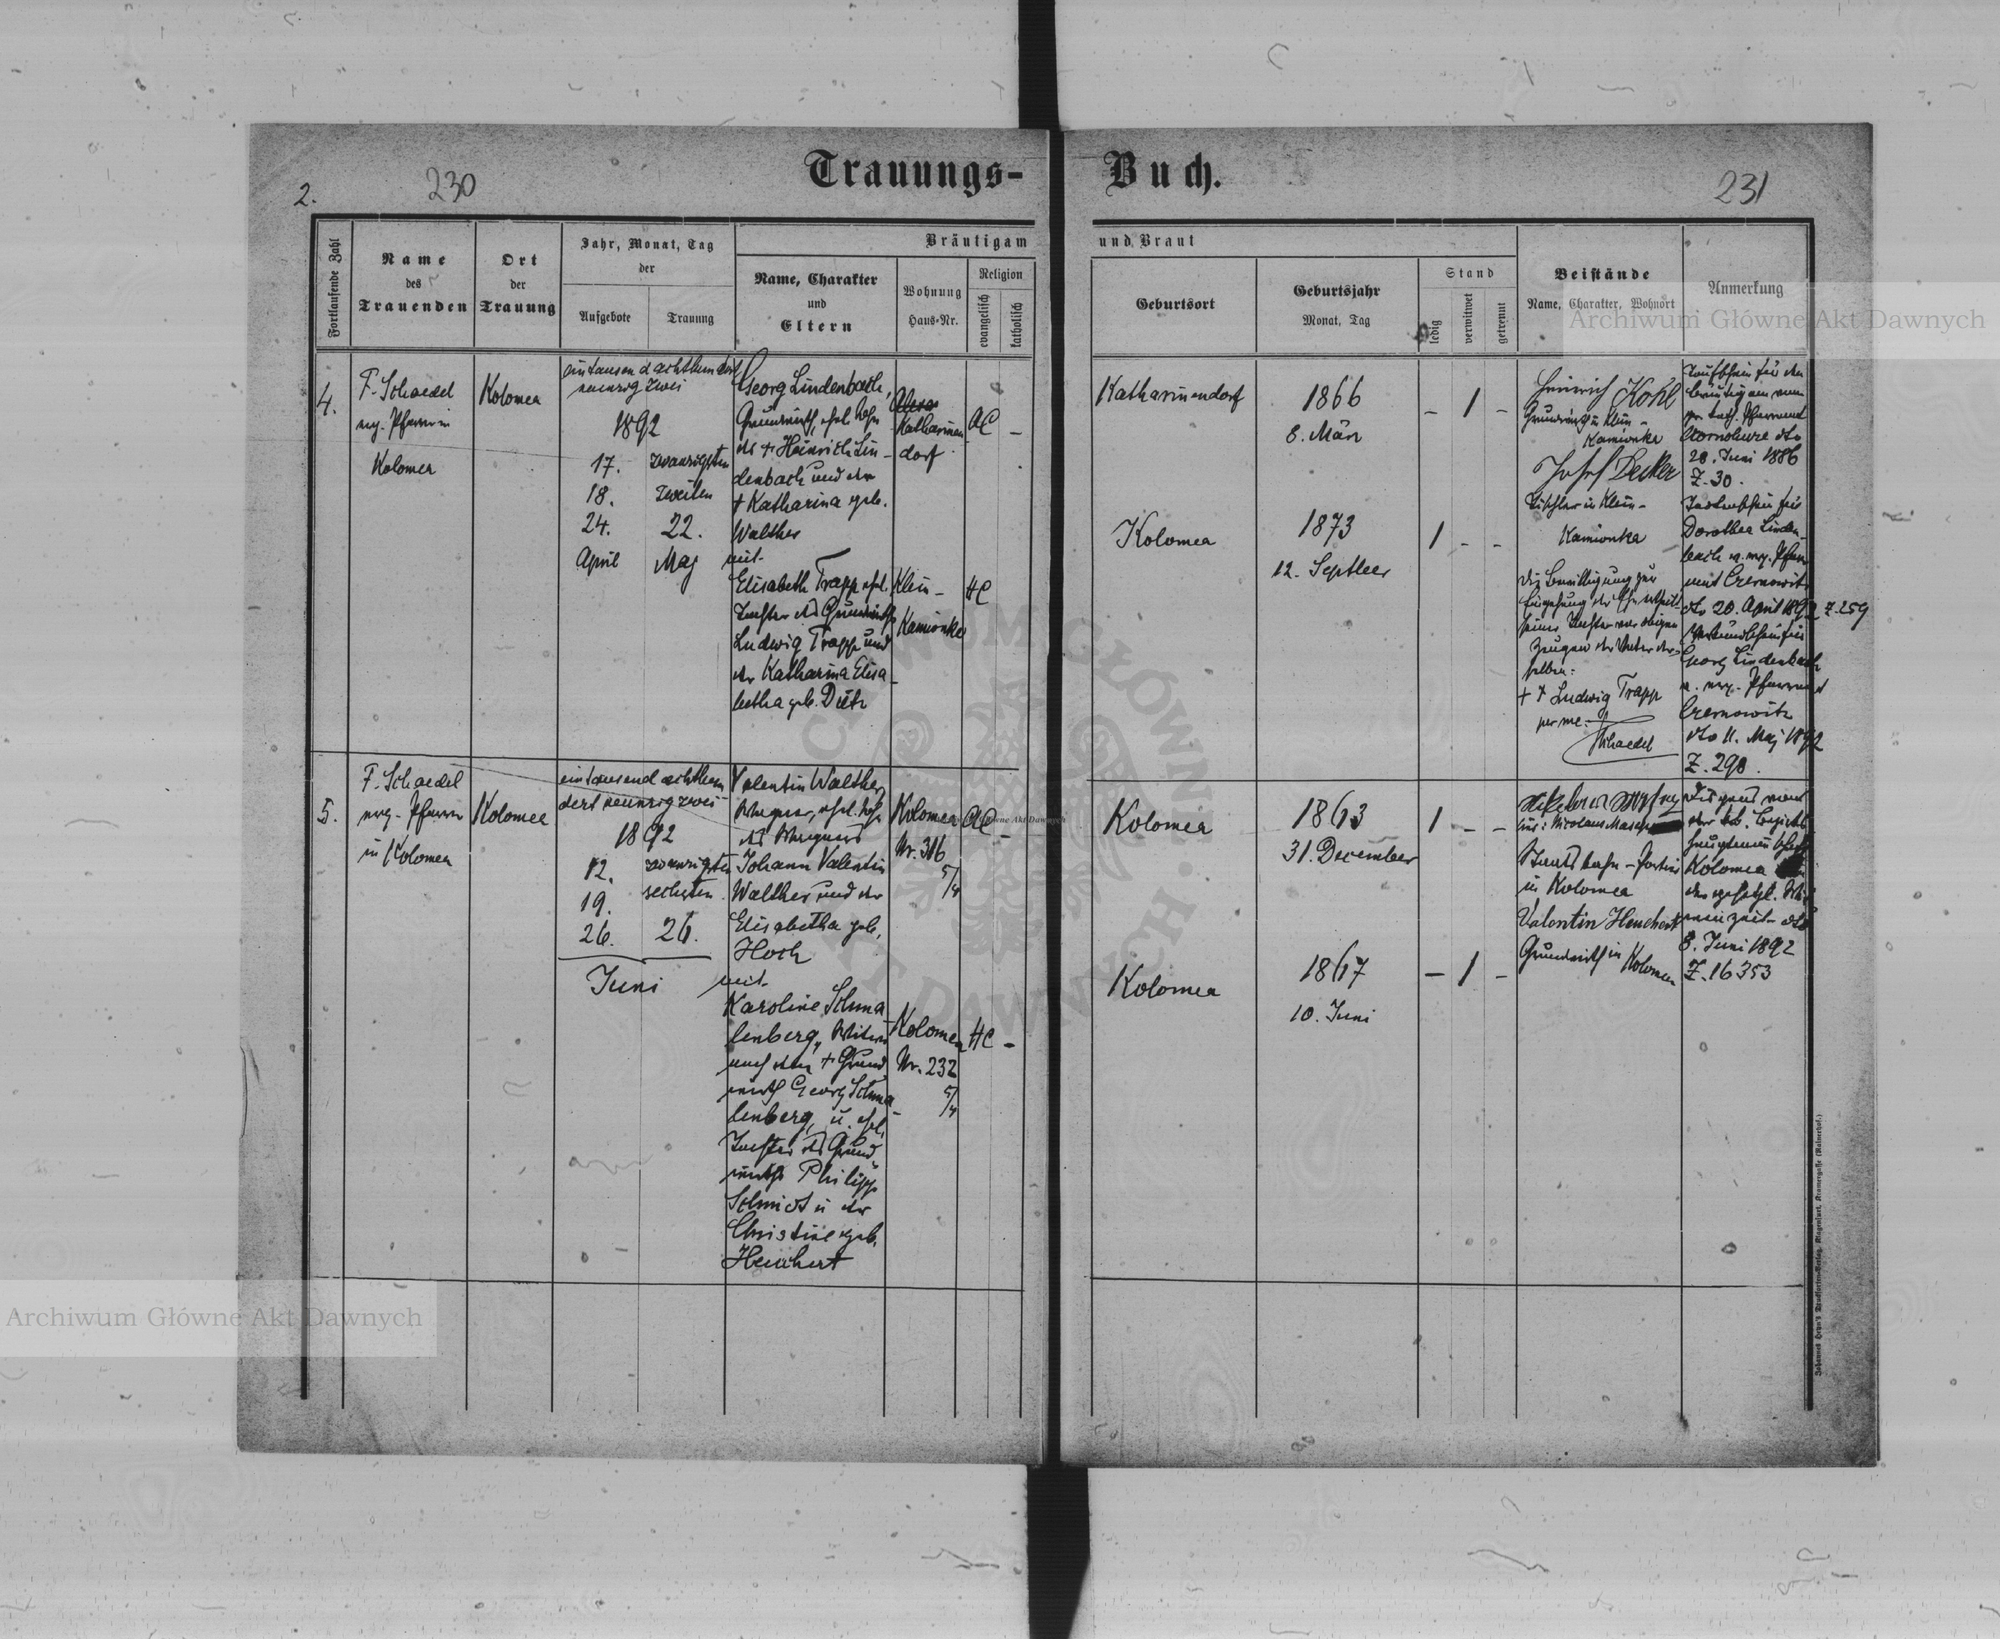 2.
230
Trauungs-
Buch.
231
Fortlaufende Zahl
Name
des
Trauenden
Ort
der
Trauung
Jahr, Monat, Tag
der
Aufgebote
Trauung
Bräutigam
und Braut
Name, Charakter
und
Eltern
Wohnung
Haus-Nr.
Religion
evangelisch
katholisch
Geburtsort
Geburtsjahr
Monat, Tag
Stand
ledig
verwitwet
getrennt
Beistände
Name, Charakter, Wohnort
Anmerkung
4.
F. Schaedel
evg. Pfarrer in
Kolomea
Kolomea
eintausend achthundert
neunzig zwei
1892
17.
18.
24.
April
zwanzigsten
zweiten
22.
Maj
Georg Lindenbach,
Grundwirth, ehel. Sohn
des + Heinrich Lin-
denbach und der
+ Katharina geb.
Walther
mit
Elisabeth Trapp, ehel.
Tochter des Grundwirths
Ludwig Trapp und
der Katharina Elisa-
betha geb. Dietz
Katharinen-
dorf
Klein-
Kamionka
AC
-
HC
Katharinendorf
Kolomea
1866
8. März
1873
12. Septber
- 1 -
1 - -
Heinrich Kohl
Grundwirth in Klein-
Kamionka
Josef Decker
Tischler in Klein-
Kamionka
Die Bewilligung zur
Eingehung der Ehe ertheilt
seiner Tochter vor obigen
Zeugen der Vater der-
selben:
+ + Ludwig Trapp
per me
FSchaedel
Taufschein für den
Bräutigam vom
gr. kath. Pfarramt
dto
20. Juni 1886
Z. 30.
Todtenschein für
Dorothea Linden-
bach v. evg. Pfarr-
amt Czernowitz
dto 20. April 1892 Z. 259
Verkündschein für
Georg Lindenbach
v. evg. Pfarramt
Czernowitz
dto 11. Maj 1892
Z. 290.
5.
F. Schaedel
evg. Pfarrer
in Kolomea
Kolomea
eintausend achthun
dert neunzig zwei
1892
12.
19.
26.
zwanzigsten
sechsten
26.
Juni
Valentin Walther,
Wagner, ehel. Sohn
des Wagners
Johann Valentin
Walther und der
Elisabetha geb.
Hoch
mit
Karoline Schma
lenberg, Witwe
nach dem + Grund
wirth Georg Schma
lenberg, u. ehel.
Tochter des Grund
wirths Philipp
Schmidt u. der
Christine geb.
Heuchert
Kolomea
Nr. 316
5/4
Kolomea
Nr. 232
5/4
AC
-
HC -
Kolomea
Kolomea
1863
31. December
1867
10. Juni
1 - -
- 1 -
Staatsbahn-Portier
in Kolomea
Valentin Heuchert
Grundwirth in Kolomea
Dispens von
der kk. Bezirks
hauptmannschaft
Kolomea
der gesetzl. Wit
wenzeit dto
8. Juni 1892
Z. 16353
Archiwum Główne Akt Dawnych
Archiwum Główne Akt Dawnych
ARCHIWUM GŁÓWNE AKT DAWNYCH